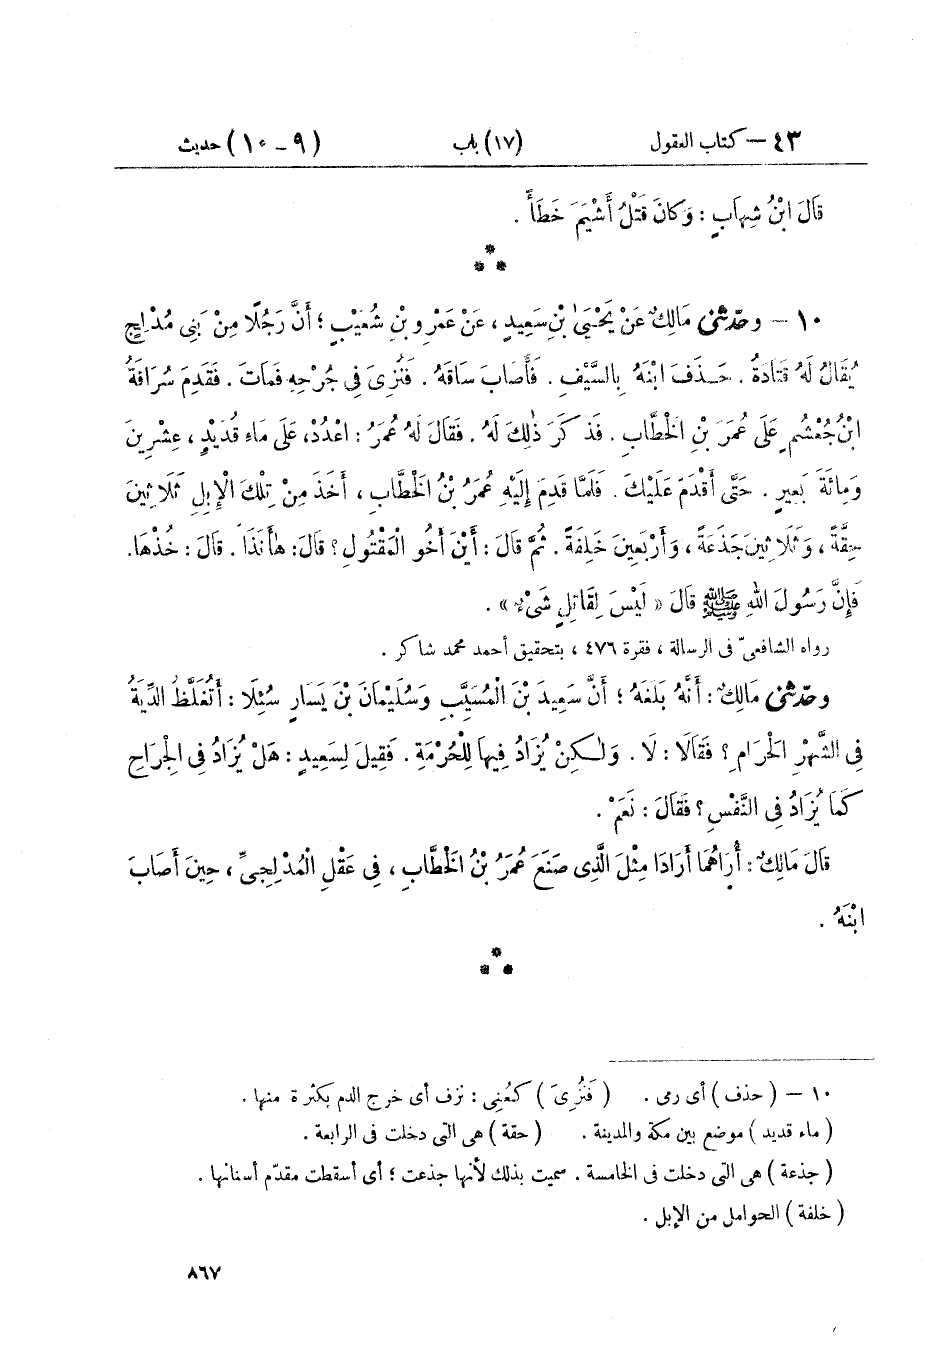 ٤٣ – كتاب العقول (١٧) باب (٩ – ١٠) حديث
قَالَ ابْنُ شِهَابٍ : وَكَانَ قَتْلُ أَشْيَمَ خَطَأً .
١٠ – وحدّثنى مَالِكٌ عَنْ يَحْيَىٰ بْنِ سَعِيدٍ ، عَنْ عَمْرِو بْنِ شُعَيْبٍ ؛ أَنَّ رَجُلًا مِنْ بَنِى مُدْلِجٍ
يُقَالُ لَهُ قَتَادَةُ . حَذَفَ ابْنَهُ بِالسَّيْفِ . فَأَصَابَ سَاقَهُ . فَنُزِىَ فِى جُرْحِهِ فَمَاتَ . فَقَدِمَ سُرَاقَةُ
ابْنُ جُعْشُمٍ عَلَى عُمَرَ بْنِ الْخَطَّابِ . فَذَكَرَ ذٰلِكَ لَهُ . فَقَالَ لَهُ عُمَرُ : اعْدُدْ، عَلَى مَاءِ قُدَيْدٍ ، عِشْرِينَ
وَمِائَةَ بَعِيرٍ . حَتَّى أَقْدَمَ عَلَيْكَ . فَلَمَّا قَدِمَ إِلَيْهِ عُمَرُ بْنُ الْخَطَّابِ ، أَخَذَ مِنْ تِلْكَ الْإِبِلِ ثَلَاثِينَ
حِقَّةً ، وَثَلَاثِينَ جَذَعَةً ، وَأَرْبَعِينَ خَلِفَةً . ثُمَّ قَالَ : أَيْنَ أَخُو الْمَقْتُولِ ؟ قَالَ: هٰأَنَذَا . قَالَ : خُذْهَا.
فَإِنَّ رَسُولَ اللهِ ﷺ قَالَ « لَيْسَ لِقَاتِلٍ شَىْءٌ » .
رواه الشافعىّ فى الرسالة ، فقرة ٤٧٦ ، بتحقيق أحمد محمد شاكر .
وحدّثنى مَالِكٌ : أَنَّهُ بَلَغَهُ ؛ أَنَّ سَعِيدَ بْنَ الْمُسَيَّبِ وَسُلَيْمَانَ بْنَ يَسَارٍ سُئِلَا : أَتُغَلَّظُ الدِّيَةُ
فِى الشَّهْرِ الْحَرَامِ ؟ فَقَالَا : لَا . وَلٰكِنْ يُزَادُ فِيهَا لِلْحُرْمَةِ . فَقِيلَ لِسَعِيدٍ : هَلْ يُزَادُ فِى الْجِرَاحِ
كَمَا يُزَادُ فِى النَّفْسِ ؟ فَقَالَ : نَعَمْ .
قَالَ مَالِكٌ : أُرَاهُمَا أَرَادَا مِثْلَ الَّذِى صَنَعَ عُمَرُ بْنُ الْخَطَّابِ ، فِى عَقْلِ الْمُدْلِجِىِّ ، حِينَ أَصَابَ
ابْنَهُ .
١٠ – ( حذف ) أى رمى . ( فَنُزِىَ ) كَعُنِىَ : نزف أى خرج الدم بكثرة منها .
( ماء قديد ) موضع بين مكة والمدينة . ( حقة ) هى التى دخلت فى الرابعة .
( جذعة ) هى التى دخلت فى الخامسة . سميت بذلك لأنها جذعت ؛ أى أسقطت مقدّم أسنانها .
( خلفة ) الحوامل من الإبل .
٨٦٧